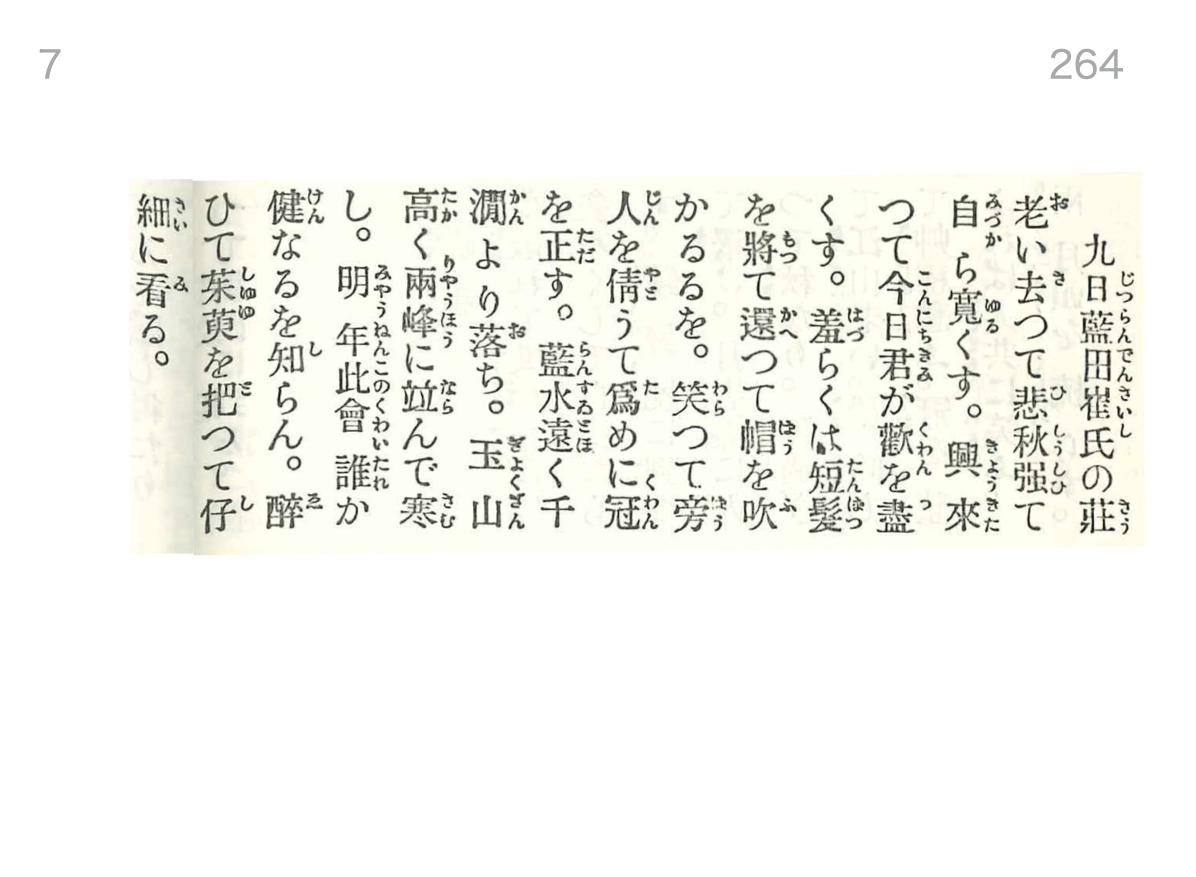 7
264
九日藍田崔氏の莊
老い去つて悲秋强て
自ら寬くす。興來
つて今日君が歡を盡
くす。羞らくは短髮
を將て還つて帽を吹
かるるを。笑つて旁
人を倩うて爲めに冠
を正す。藍水遠く千
澗より落ち。玉山
高く兩峰に竝んで寒
し。明年此會誰か
健なるを知らん。醉
ひて茱萸を把つて仔
細に看る。